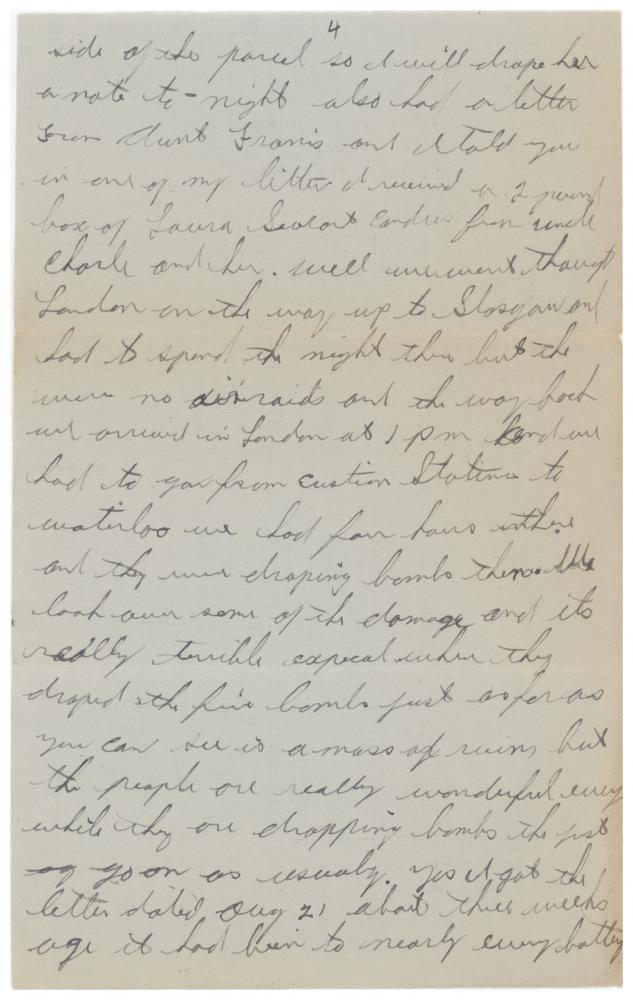 4
side of the parcel so I will drope her
a note to-night also had a letter
from Aunt Franis and I told you
in one of my letter I received a 2 pound
box of Laura Secort Candies from uncle
Charle and her. well we went though
London on the way up to Glasgow and
had to spend the night there but the
were no air raids and the way back
we arrived in London at 1 pm and we
had to go from Eustion Stations to
waterloo we had four hours inthere
and they were droping bombs there. We
look over some of the damage and its
really terrible expecal when they
droped the fire bombs just as far as
you can see is a mass of ruins but
the people are really wonderful every
while they are dropping bombs the just
go on as usualy. Yes I got the
letter dated Aug 21 about three weeks
age it had been to nearly every battery